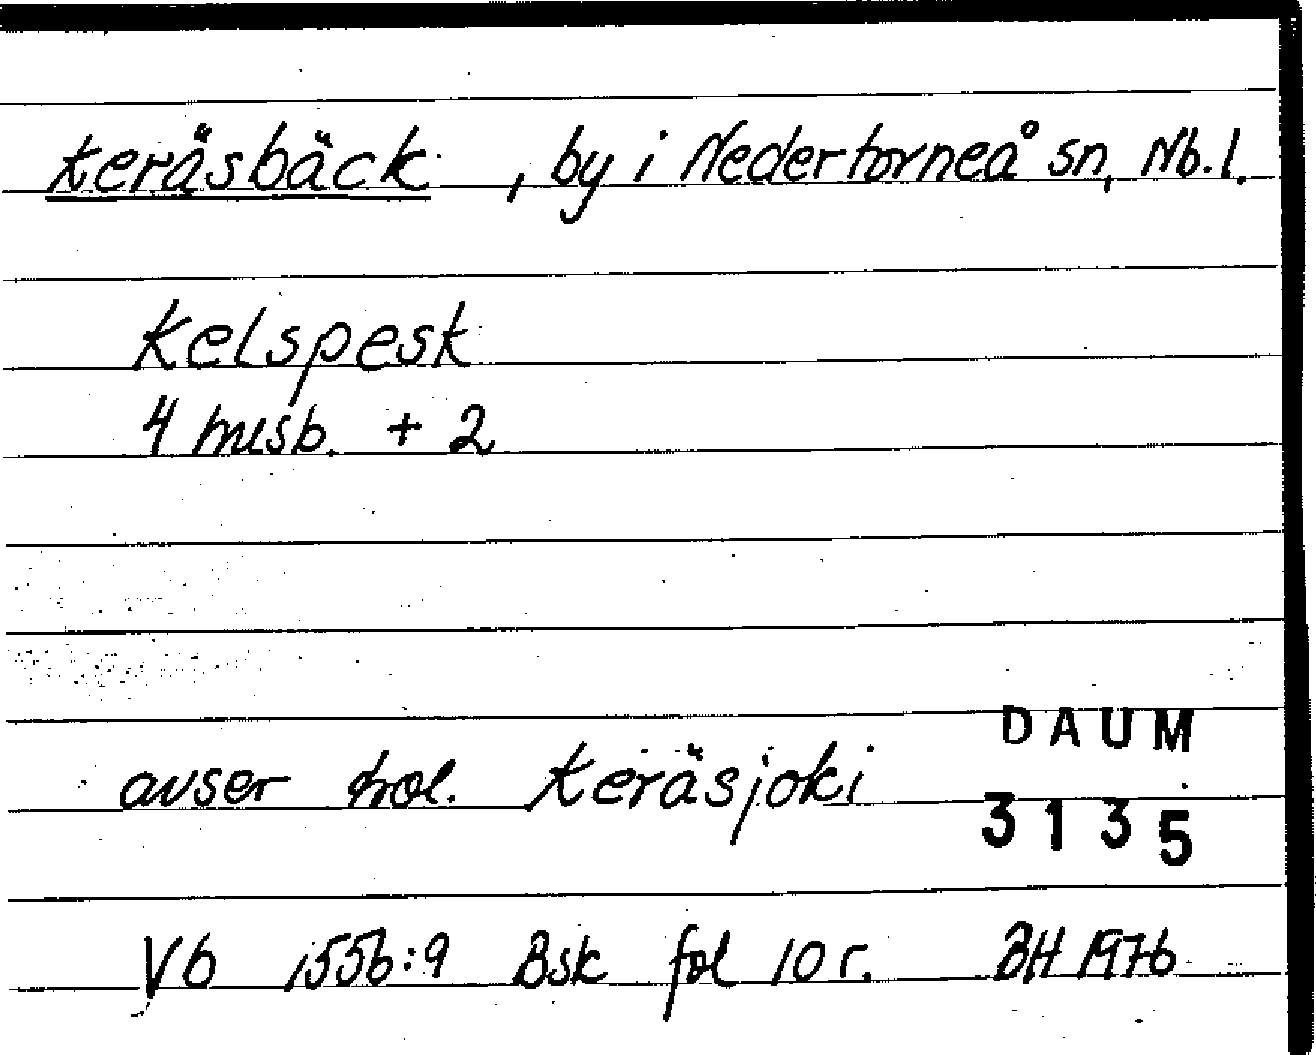 Keräsbäck, by i Nedertorneå sn, Nb.l.
Kelspesk
4 misb. + 2
avser trol. Keräsjoki
DAUM
3135
Vb 1556:9 Bsk fol 10 r. BH 1976